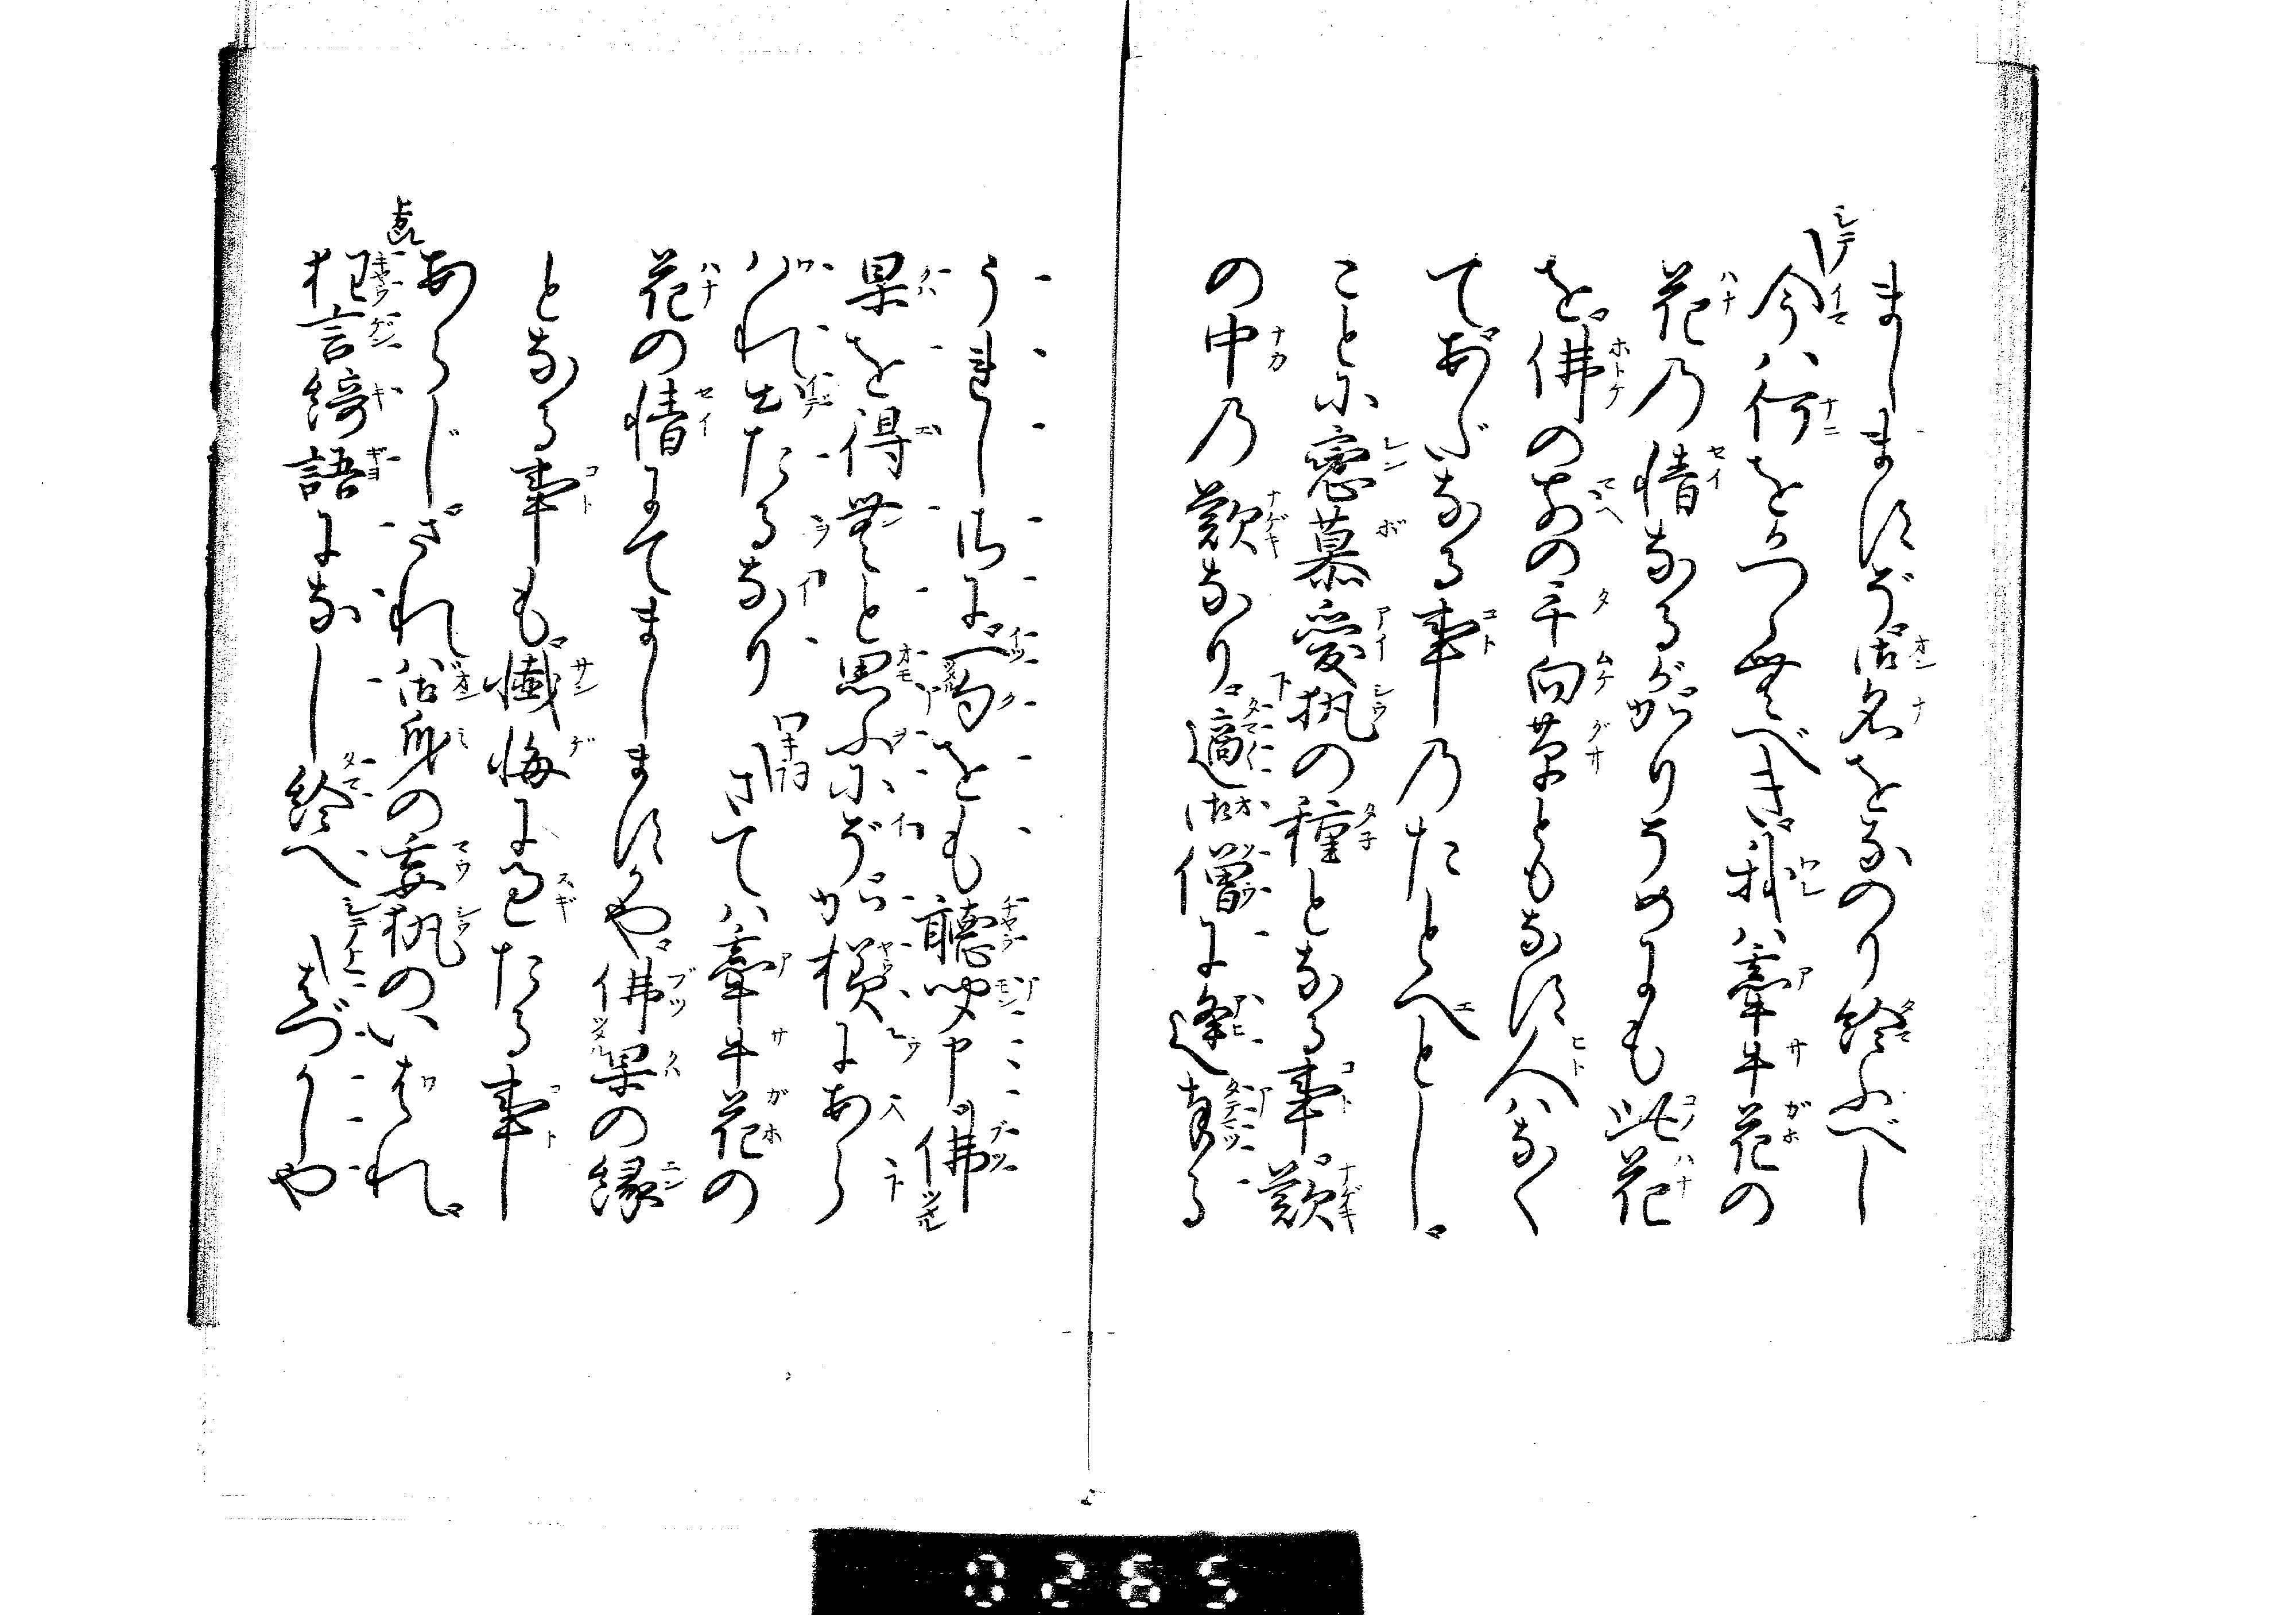 ましますぞ御名をなのり給ふべし
シテ 今ハ何をかつゝむべき我ハ牽牛花の
花乃情なるがあまりうゐにも此花
を佛のまへの手向草ともなす人ハなく
てあだなる事乃たとへとし
ことに戀慕愛執の種となる事歎
の中乃歎なり適御僧に逢奉る
うれしさに一句をも聴聞申佛
果を得むと思ふにぞか様にあら
ハれ出たるなり ワキ さてハ牽牛花の
花の情にてましますかや佛果の縁
となる事も懺悔に過たる事
あらじされバ御身の妄執のいはれ
狂言綺語になし給へ シテ上 はづかしや
0265